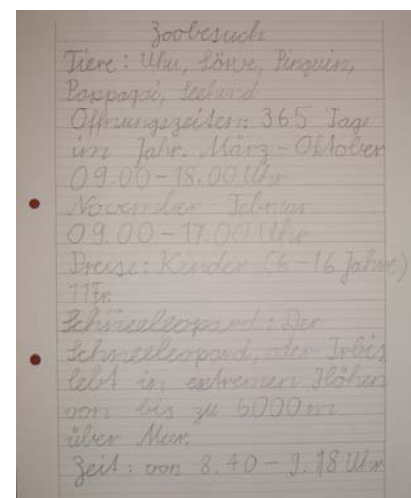 Zoobesuch
Tiere: Uhu, Löwe, Pinguin,
Pappagai, Seehund
Öffnungszeiten: 365 Tage
im Jahr. März - Oktober
09.00 - 18.00 Uhr
November - Februar
09.00 - 17.00 Uhr
Preise: Kinder (6 - 16 Jahre)
11 Fr.
Schneeleopard: Der
Schneeleopard, oder Irbis
lebt in extremen Höhen
von bis zu 6000 m
über Meer.
Zeit: von 8.40 - 9.18 Uhr